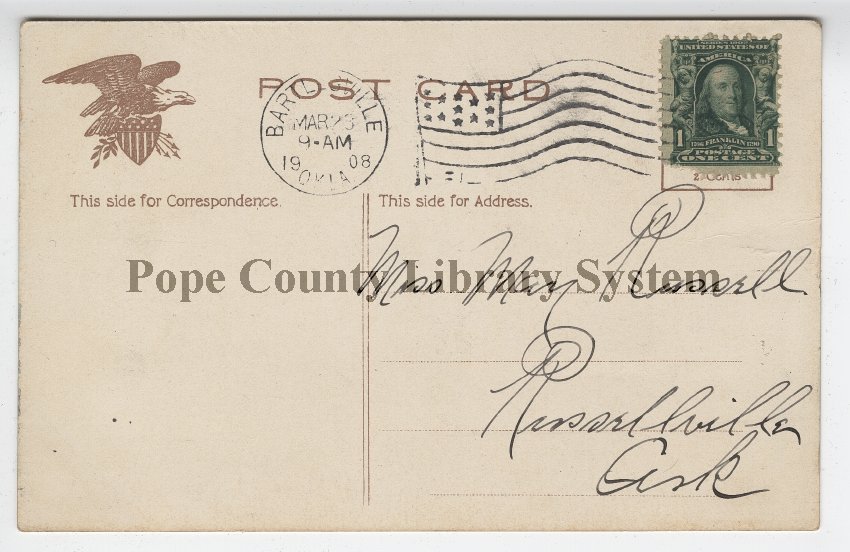 POST CARD
BARTLESVILLE
MAR 23
9-AM
1908
OKLA.
SERIES 1902
UNITED STATES OF
AMERICA
1 1
1706 FRANKLIN 1790
POSTAGE
ONE CENT
2 Cents
This side for Correspondence.
This side for Address.
Pope County Library System
Miss May Russell
Russellville
Ark